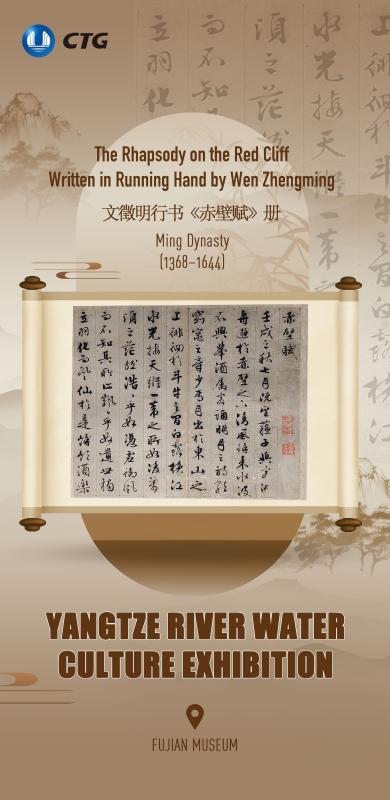 CTG
The Rhapsody on the Red Cliff
Written in Running Hand by Wen Zhengming
文徵明行书《赤壁赋》册
Ming Dynasty
(1368–1644)
赤壁賦
壬戌之秋七月既望蘇子與客泛
舟遊於赤壁之下清風徐來水波
不興舉酒屬客誦明月之詩歌
窈窕之章少焉月出於東山之
上徘徊於斗牛之間白露橫江
水光接天縱一葦之所如凌萬
頃之茫然浩浩乎如憑虛御風
而不知其所止飄飄乎如遺世獨
立羽化而登仙於是飲酒樂
YANGTZE RIVER WATER
CULTURE EXHIBITION
FUJIAN MUSEUM